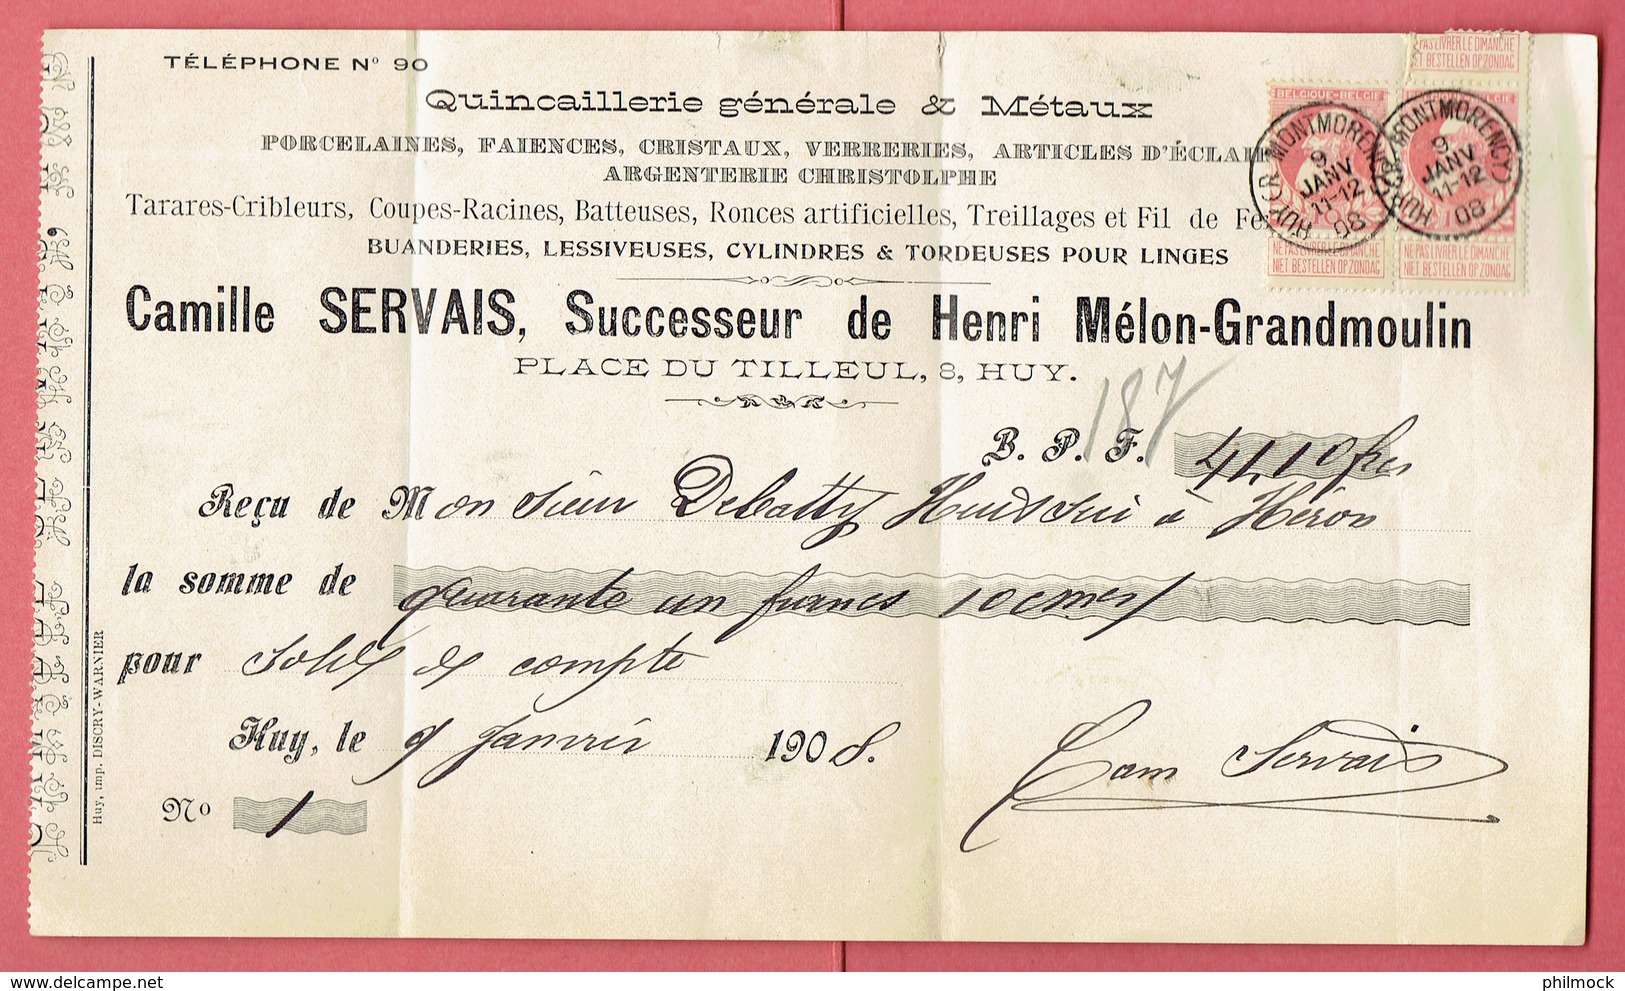 TÉLÉPHONE N° 90
Quincaillerie générale & Métaux
PORCELAINES, FAIENCES, CRISTAUX, VERRERIES, ARTICLES D'ÉCLAI
ARGENTERIE CHRISTOLPHE
Tarares-Cribleurs, Coupes-Racines, Batteuses, Ronces artificielles, Treillages et Fil de Fe
BUANDERIES, LESSIVEUSES, CYLINDRES & TORDEUSES POUR LINGES
Camille SERVAIS, Successeur de Henri Mélon-Grandmoulin
PLACE DU TILLEUL, 8, HUY.
187
B. P. F. 41,10 frcs
Reçu de Monsieur Debatty à Héron
la somme de quarante un francs 10 cmes
pour Solde de compte
Huy, le 9 Janvier 1908.
Cam Servais
No 1
Huy, imp. DISCRY-WARNIER
NE PAS LIVRER LE DIMANCHE
NIET BESTELLEN OP ZONDAG
BELGIQUE-BELGIË
HUY (R. MONTMORENCY)
9
JANV
11-12
08
HUY (R. MONTMORENCY)
9
JANV
11-12
08
NE PAS LIVRER LE DIMANCHE
NIET BESTELLEN OP ZONDAG
NE PAS LIVRER LE DIMANCHE
NIET BESTELLEN OP ZONDAG
philmock